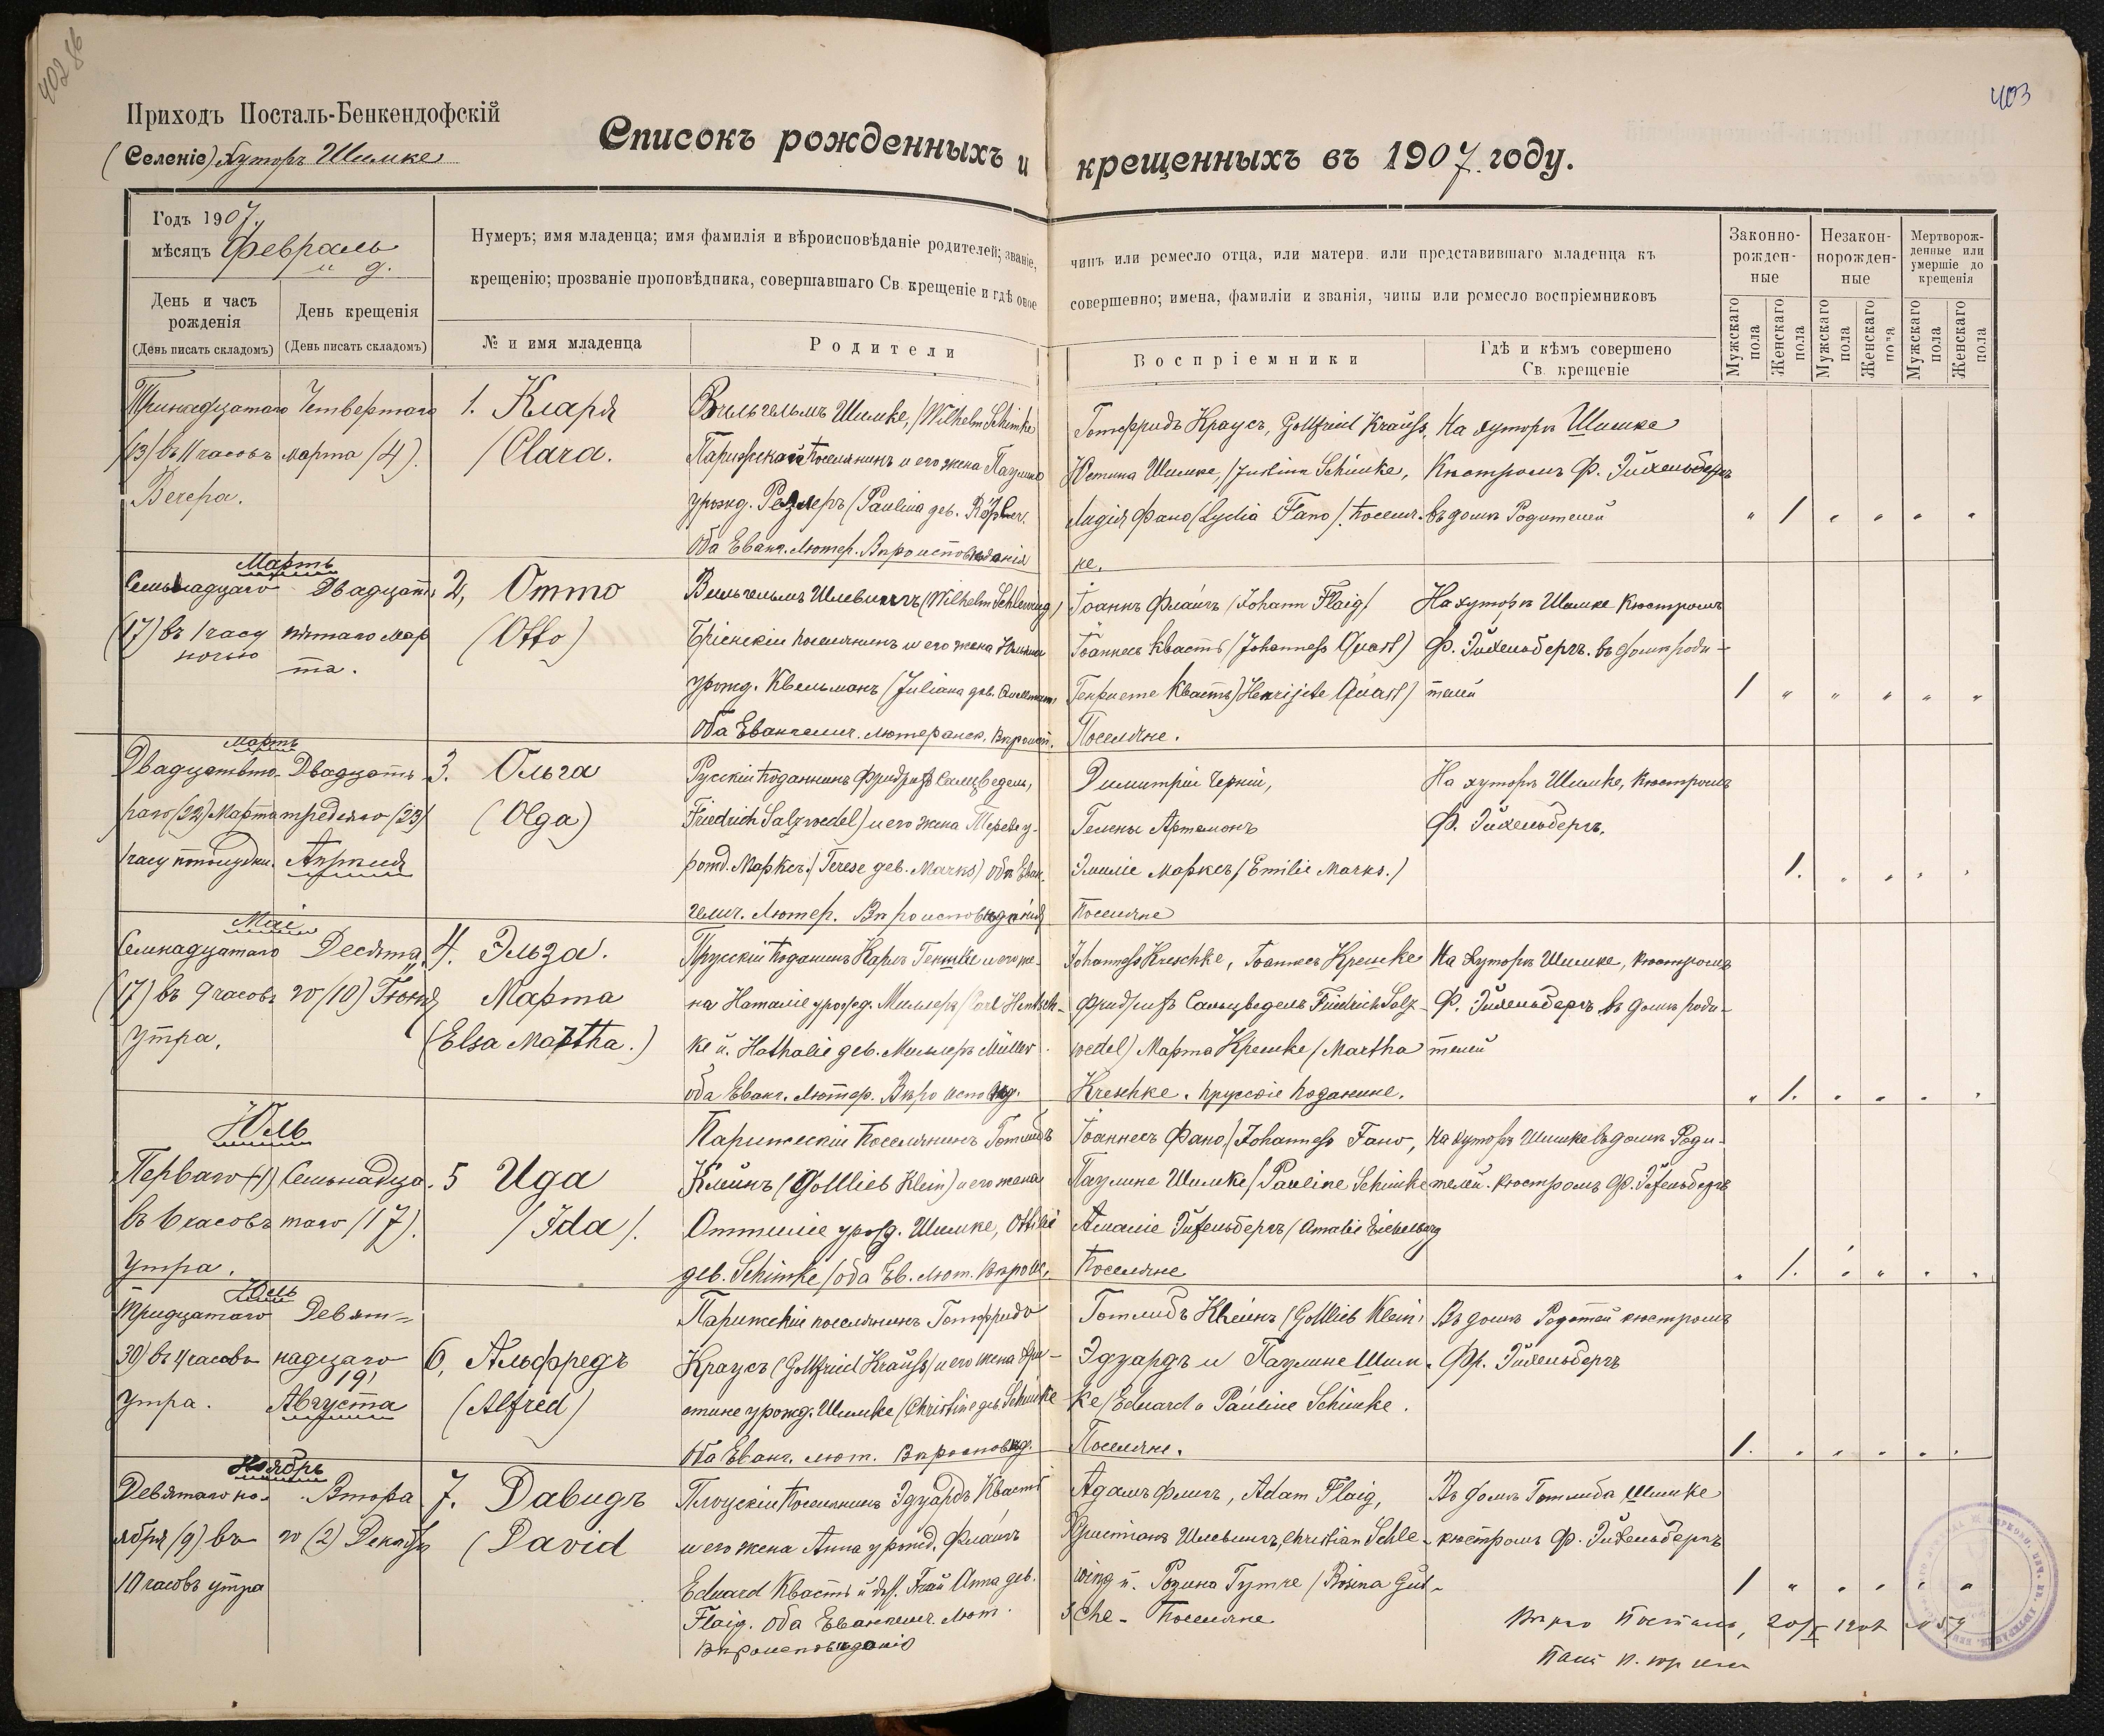 40286
403
Приходъ Посталь-Бенкендофскій
(Селеніе) Хуторъ Шимке
Списокъ рожденныхъ и крещенныхъ въ 1907 году.
Годъ 1907,
мѣсяцъ Февраль
и д.
День и часъ рожденія
(День писать складомъ)
День крещенія
(День писать складомъ)
Нумеръ; имя младенца; имя фамилія и вѣроисповѣданіе родителей; званіе, чинъ или ремесло отца, или матери. или представившаго младенца къ
крещенію; прозваніе проповѣдника, совершавшаго Св. крещеніе и гдѣ оное совершенно; имена, фамиліи и званія, чины или ремесло воспріемниковъ
№ и имя младенца
Родители
Воспріемники
Гдѣ и кѣмъ совершено
Св. крещеніе
Законно-
рожден-
ные
Незакон-
норожден-
ные
Мертворож-
денные или
умершіе до
крещенія
Мужскаго пола
Женскаго пола
Мужскаго пола
Женскаго пола
Мужскаго пола
Женскаго пола
Тринадцатаго
(13) въ 11 часовъ
Вечера.
Четвертаго
марта (4).
1. Клара
(Clara.
Вильгельмъ Шимке, (Wilhelm Schimke
Парижскій Поселянинъ и его жена Паулина
урожд. Резлеръ (Paulina дев.
Оба Еванг. Лютер. Вѣроисповѣданія
Готфридъ Краусъ, Gottfried Krauß,
Юстина Шимке, (Justina Schimke,
Лидія Фано (Lydia Fano). Поселя-
не.
На хуторѣ Шимке
Кюстромъ Ф. Эйхельбергъ
въ домѣ Родителей
" 1 " " " "
Мартъ
Семьнадцаго
(17) въ 1 часу
ночью
Двадцать
пятаго Мар
та.
2, Отто
(Otto)
Вильгельмъ Шлевингъ (Wilhelm Schlewing)
Бріенскій поселянинъ и его жена Юліана
урожд. Квельманъ (Juliana дев.
Оба Евангелич. Лютеранск. Вѣроисп.
Іоаннъ Флаигъ (Johann Flaig)
Іоаннесъ Квастъ (Johanneß Quast)
Генріете Квастъ) Henrijete Quast)
Поселяне.
На хуторѣ Шимке Кюстромъ
Ф. Эйхельбергъ. въ домѣ роди-
телей
1 " " " " "
Мартъ
Двадцатвто-
раго (22) Марта
1 часу пополудни.
Двадцать
третьяго (23)
Апрѣля
3. Ольга
(Olga)
Русскій Поданникъ Фридрихъ Салцведель,
Friedrich Salzwedel) и его жена Терезе у-
рожд. Марксъ. (Terese дев. Marks) оба Еван-
гелич. Лютер. Вѣроисповѣданія
Димитрій Черній,
Гелены Артемонъ
Эмиліе Марксъ (Emilie Marks.)
Поселяне
На хуторѣ Шимке, Кюстромъ
Ф. Эйхельбергъ.
1. " " " "
Маі
Семнадцатаго
(17) въ 9 часовъ
утра,
Десята
го (10) Іюня
4. Эльза.
Марта
(Elsa Martha.)
Прусскій Поданинъ Карлъ Геншке и его же-
на Наталіе урожд. Миллеръ (Carl Hentsch-
ke и. Nathalie дев. Миллеръ Müller
оба Еванг. Лютер. Вѣроисповѣд.
Johanneß Kreschke, Іоаннесъ Крешке
Фридрихъ Сальцведель Friedrich Salz-
wedel) Марта Крешке (Martha
Kreschke. прусскіе поданные.
На Хуторѣ Шимке, Кюстромъ
Ф. Эйхельбергъ въ домѣ роди-
телей
" 1. " " " "
Юль
Перваго (1)
въ 6 часовъ
утра.
Семьнадца-
таго (17).
5 Ида
(Ida).
Парижскій Поселянинъ Готлибъ
Клейнъ (Gottlieb Klein) и его жена
Оттиліе урожд. Шимке, Ottilie
дев. Schimke (оба Ев. Лют. Вѣроис.
Іоаннесъ Фано, (Johanneß Fano,
Паулине Шимке (Pauline Schimke
Амаліе Эйхельбергъ (Amalie Eichelberg
Поселяне
На хуторѣ Шимке въ домѣ Роди-
телей. Кюстромъ Ф. Эйхельбергъ
" 1. " " " "
Юль
Тридцатаго
30) въ 4 часовъ
утра.
Девят-
надцаго
19)
Августа
6, Альфредъ
(Alfred)
Парижскій поселянинъ Готфридъ
Краусъ (Gottfried Krauß) и его жена Хри-
стине урожд. Шимке (Christine дев. Schimke
Оба Еванг. лют. Вѣроисповѣд.
Готлибъ Клейнъ (Gottlieb Klein,
Эдуардъ и Паулине Шим-
ке (Eduard u Pauline Schimke.
Поселяне.
Въ домѣ Родителей кюстромъ
Фр. Эйхельбергъ
1. " " " " "
Ноябрь
Девятаго но-
ября (9) въ
10 часовъ утра
Втора
го (2) Декабря
7. Давидъ
(David
Плоцскій Поселянинъ Эдуардъ Квастъ
и его жена Анна урожд. Флаигъ
Eduard Квастъ и Frau Anna geb.
Flaig. Оба Евангелич. Лют.
Вѣроисповѣданія
Адамъ Флигъ, Adam Flaig,
Христіанъ Шлевингъ, Christian Schle-
wing и. Розина Гутче (Rosina Gut-
sche - Поселяне
Въ домѣ Готлиба Шимке
кюстромъ Ф. Эйхельбергъ
1 " " " " "